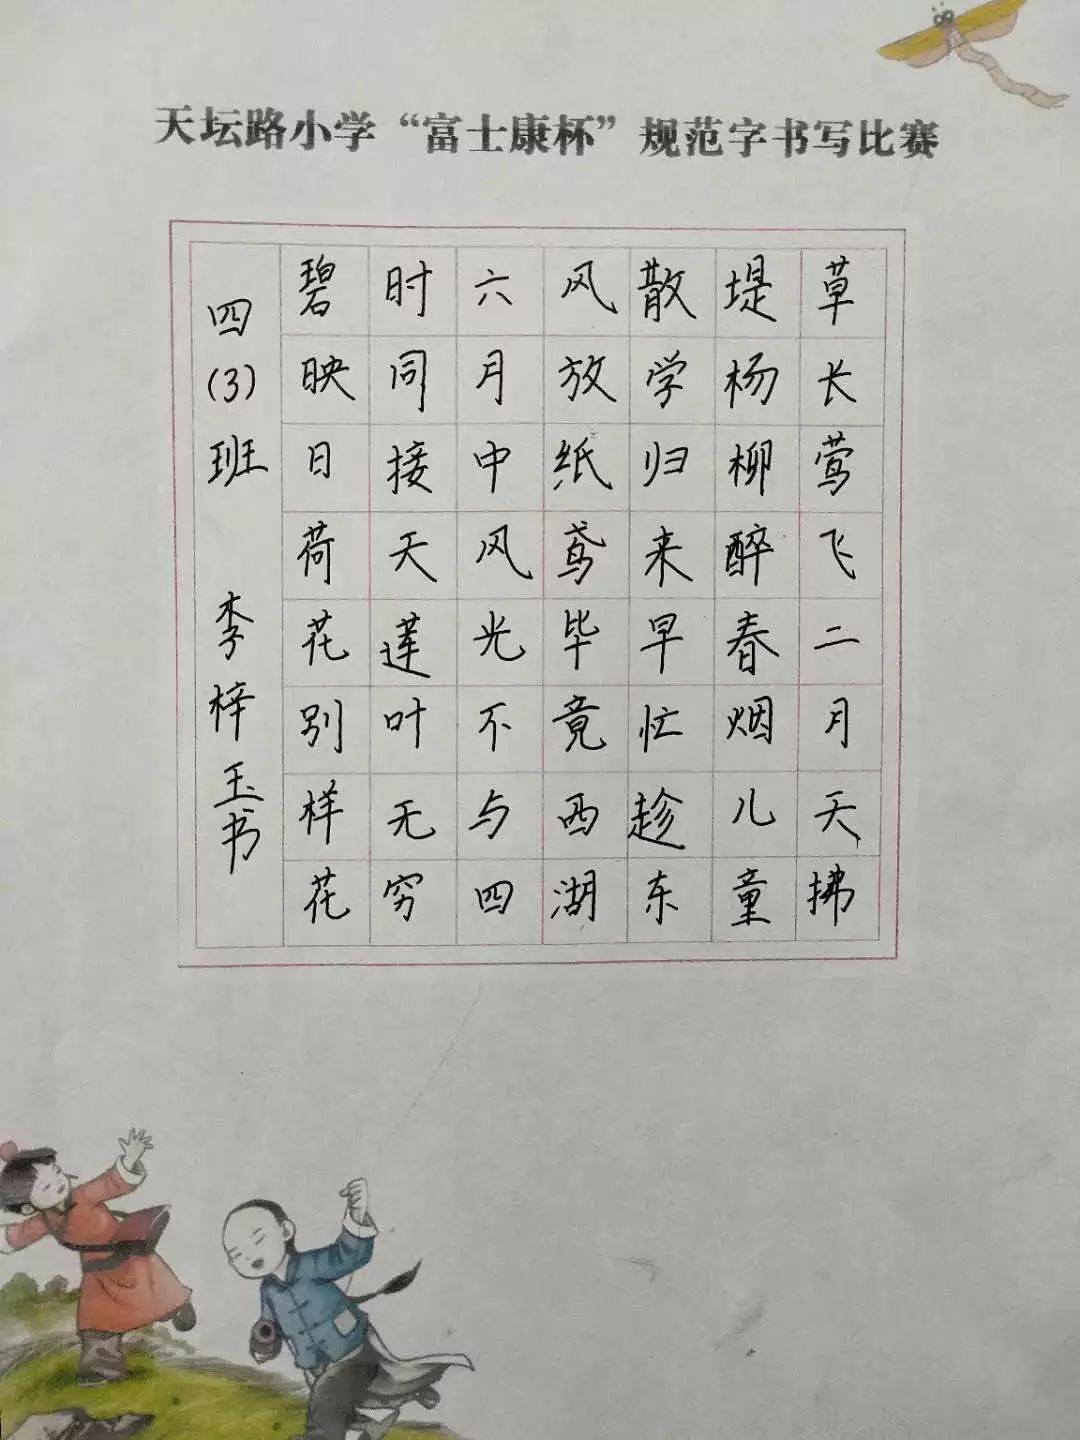 天坛路小学“富士康杯”规范字书写比赛
草长莺飞二月天拂
堤杨柳醉春烟儿童
散学归来早忙趁东
风放纸鸢毕竟西湖
六月中风光不与四
时同接天莲叶无穷
碧映日荷花别样花
四(3)班 李梓玉书